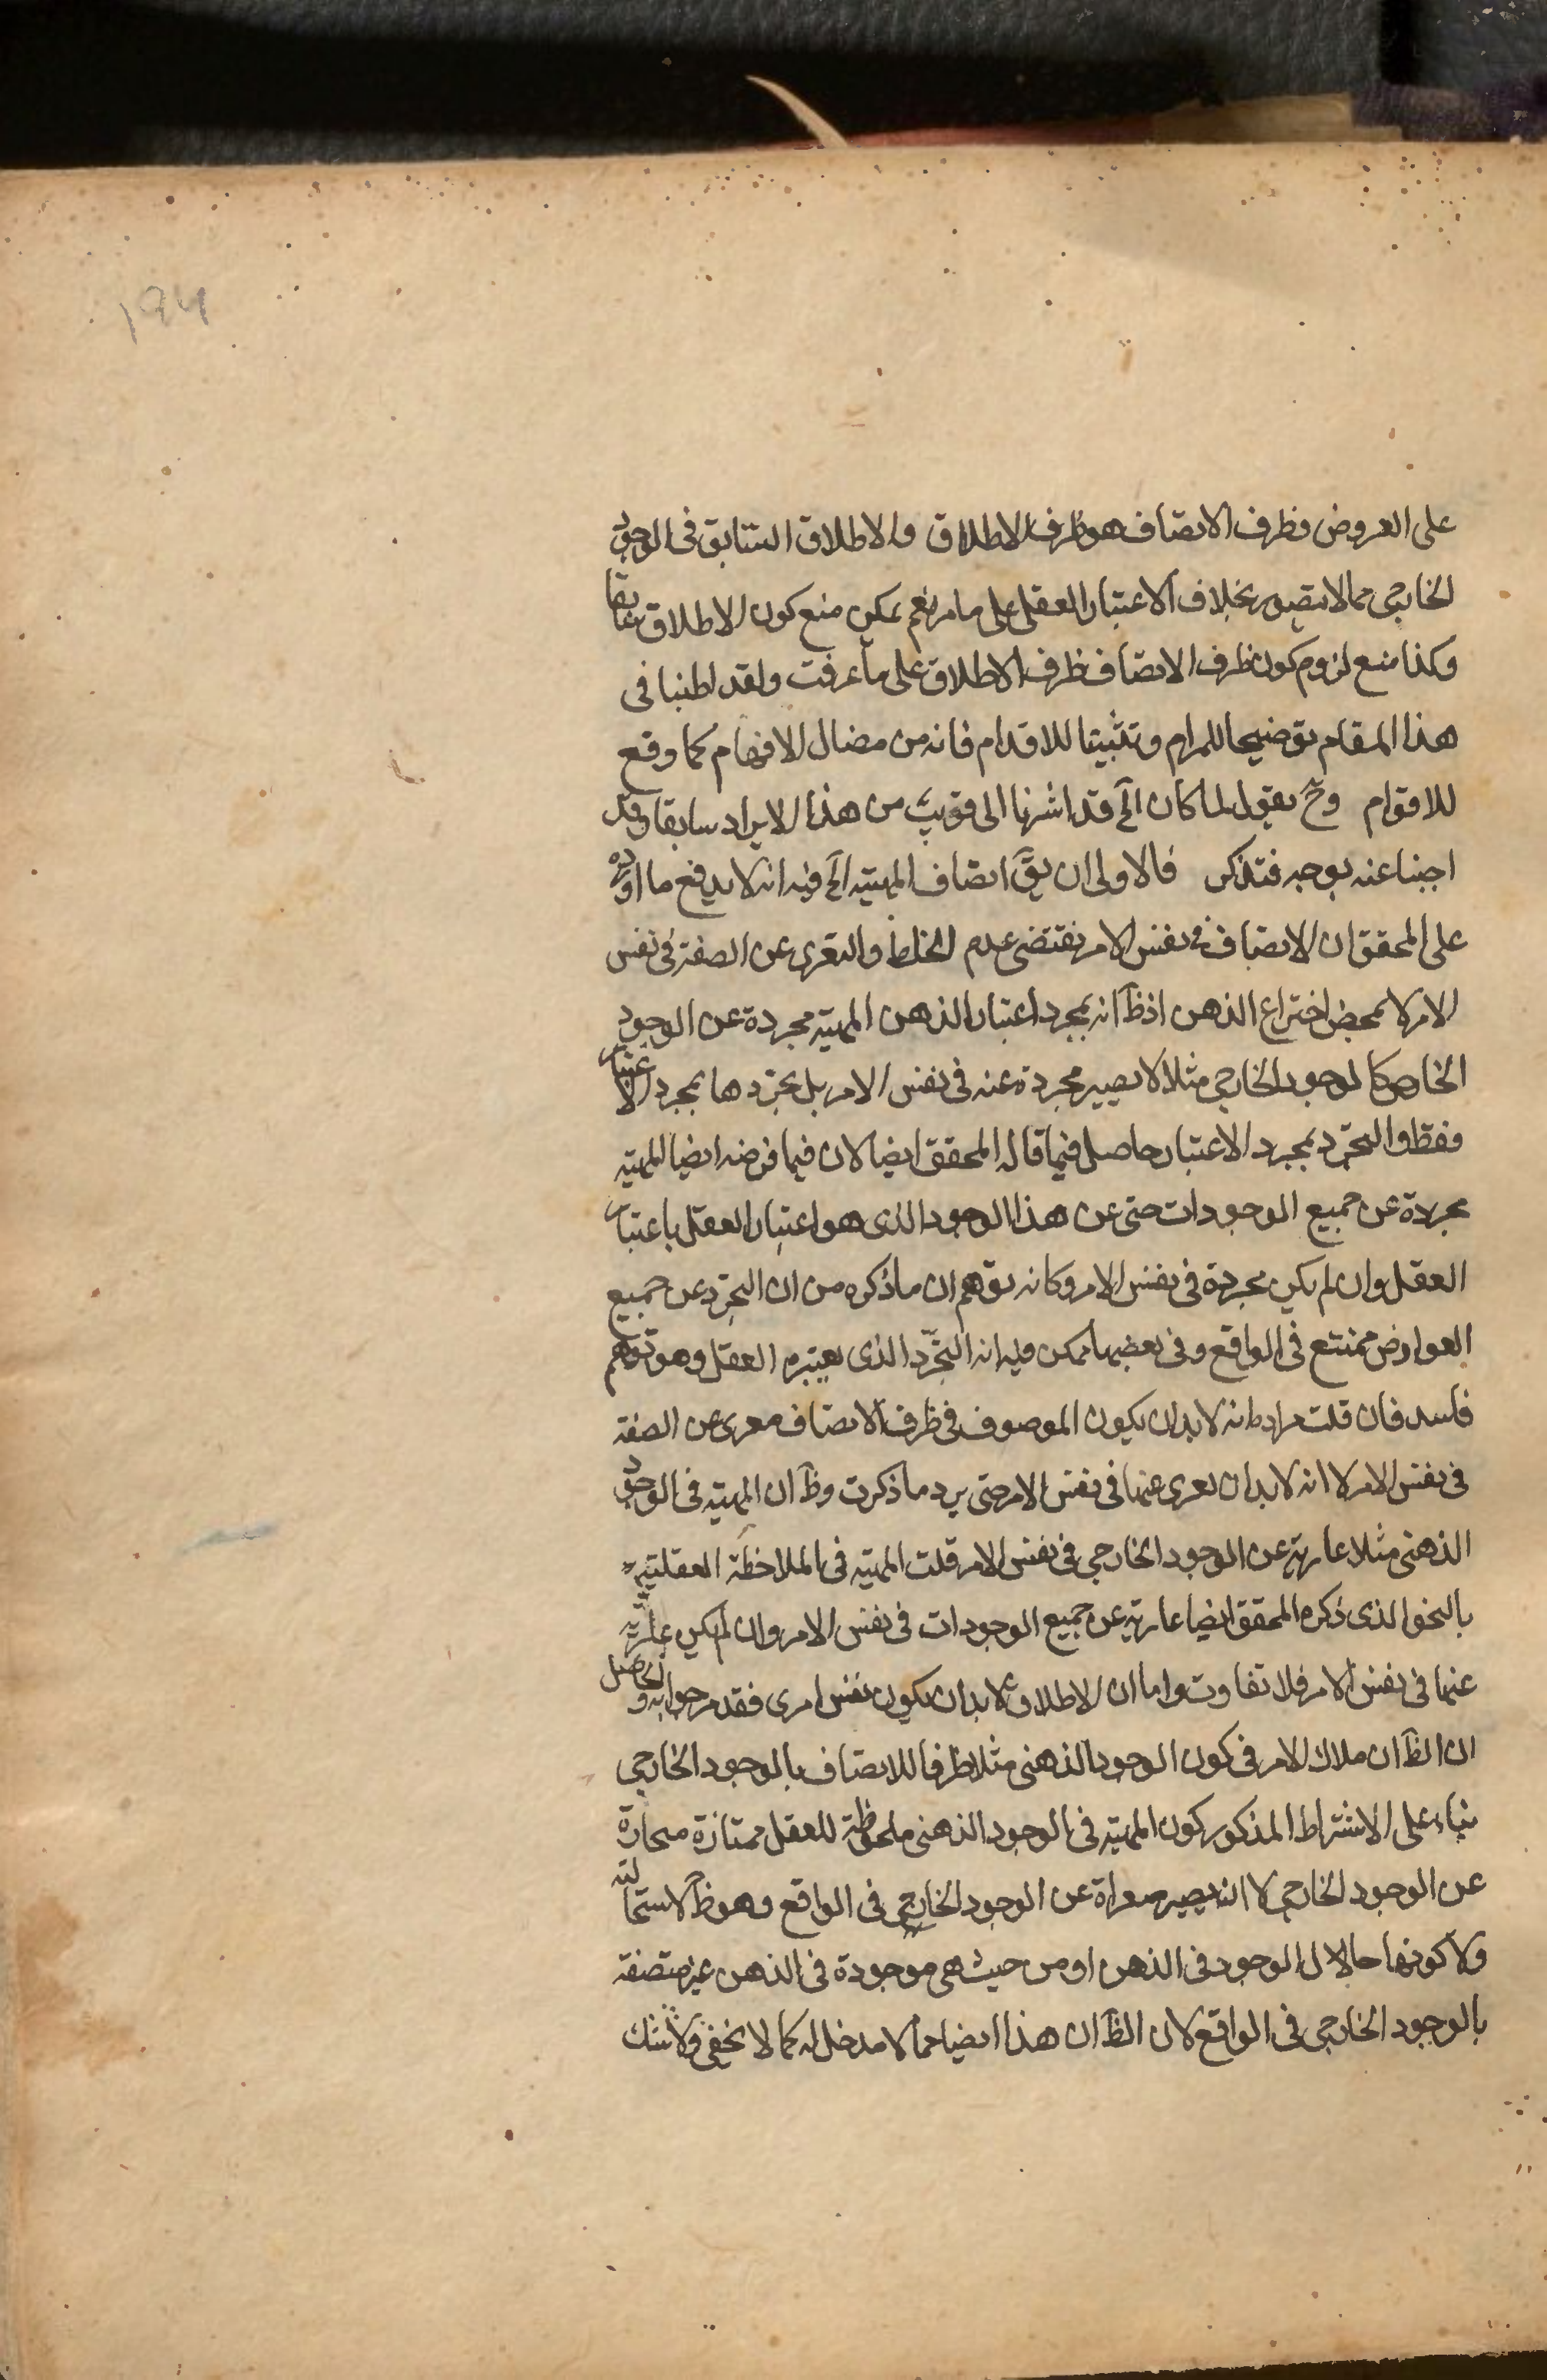 ۱۹۴
على العروض فظرف الاتصاف هو ظرف الاطلاق والاطلاق السابق فى الوجود
الخارجى مما لا يتصور بخلاف الاعتبار العقلى على ما مر نعم يمكن منع كون الاطلاق سابقا
وكذا منع لزوم كون ظرف الاتصاف ظرف الاطلاق على ما عرفت ولقد اطنبنا فى
هذا المقام توضيحا للمرام وتثبيتا للاقدام فانه من مضال الافهام كما وقع
للاقوام وح نقول لما كان الخ قد اشرنا الى قريب من هذا الايراد سابقا وقد
اجبنا عنه بوجه فتذكر فالاولى ان يق اتصاف المهية الخ فيه انه لا يدفع ما اورده
على المحقق ان الاتصاف فى نفس الامر يقتضى عدم الخلط والتعرى عن الصفة فى نفس
الامر لا بمحض اختراع الذهن اذ ظ انه بمجرد اعتبار الذهن المهية مجردة عن الوجود
الخاص كالوجود الخارجى مثلا لا يصير مجردة عنه فى نفس الامر بل تجردها بمجرد الاعتبار
فقط والتجرد بمجرد الاعتبار حاصل فيما قاله المحقق ايضا لان فيما فرضه ايضا المهية
مجردة عن جميع الوجودات حتى عن هذا الوجود الذى هو اعتبار العقل باعتبار
العقل وان لم يكن مجردة فى نفس الامر وكانه توهم ان ما ذكره من ان التجرد عن جميع
العوارض ممتنع فى الواقع وفى بعضها ممكن فيه انه التجرد الذى يعتبره العقل وهو توهم
فاسد فان قلت مراده انه لا بد ان يكون الموصوف فى ظرف الاتصاف معرى عن الصفة
فى نفس الامر لا انه لا بد ان يعرى عنها فى نفس الامر حتى يرد ما ذكرت وظ ان المهية فى الوجود
الذهنى مثلا عارية عن الوجود الخارجى فى نفس الامر قلت المهية فى الملاحظة العقلية
بالنحو الذى ذكره المحقق ايضا عارية عن جميع الوجودات فى نفس الامر وان لم يكن عارية
عنها فى نفس الامر فلا تفاوت واما ان الاطلاق لا بد ان يكون نفس امرى فقد مر جوابه والحاصل
ان الظ ان ملاك الامر فى كون الوجود الذهنى مثلا ظرفا للاتصاف بالوجود الخارجى
بناء على الاشتراط المذكور كون المهية فى الوجود الذهنى ملحوظة للعقل ممتازة منحازة
عن الوجود الخارجى لا انه يصير معراة عن الوجود الخارجى فى الواقع وهو ظ لاستحالته
ولا كونها حال الوجود فى الذهن او من حيث هى موجودة فى الذهن غير متصفة
بالوجود الخارجى فى الواقع لان الظ ان هذا ايضا مما لا مدخل له كما لا يخفى ولا شك